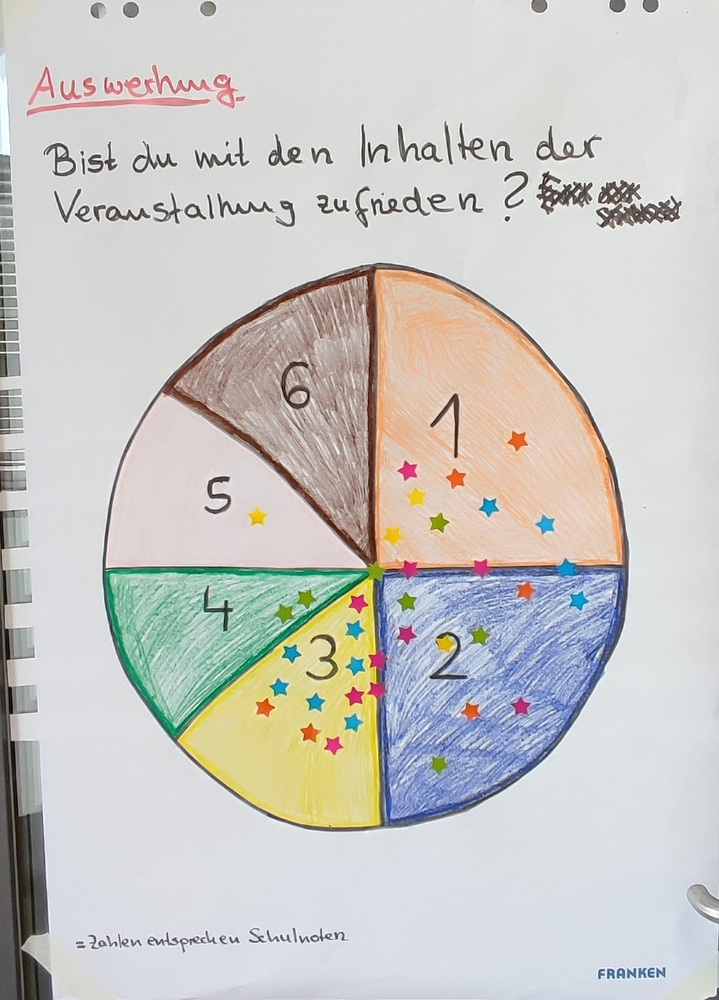 Auswertung
Bist du mit den Inhalten der
Veranstaltung zufrieden?
6
1
5
4
3
2
=Zahlen entsprechen Schulnoten
FRANKEN